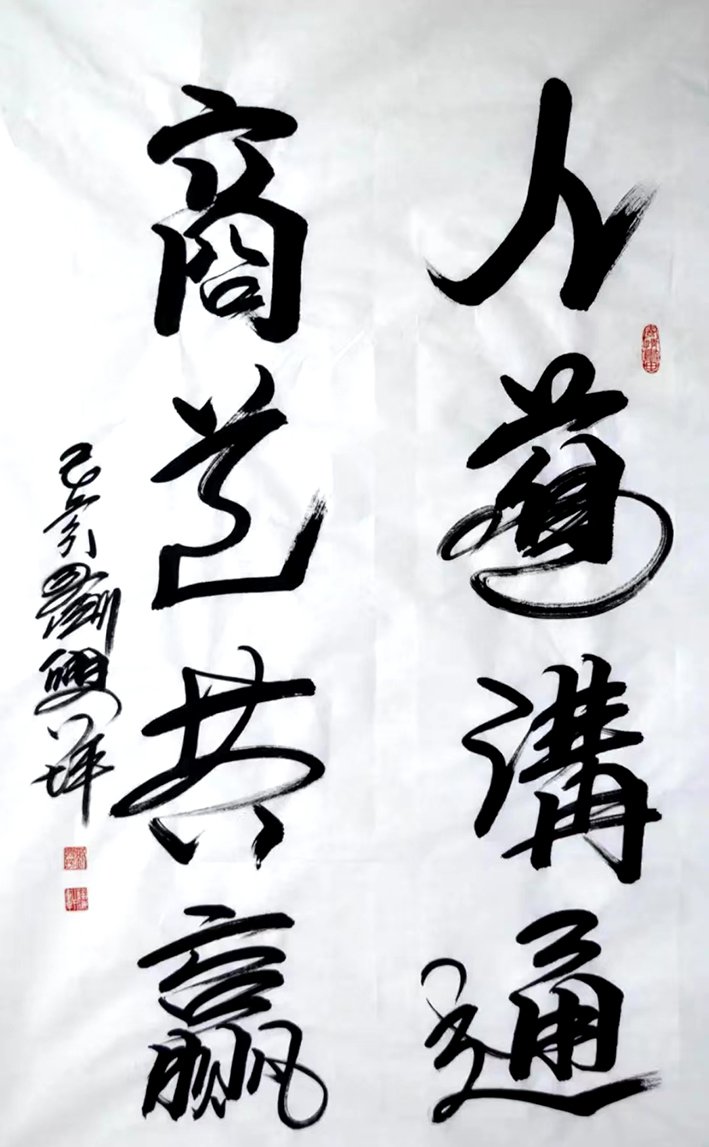 人道溝通
商道共贏
己亥劉雙祥